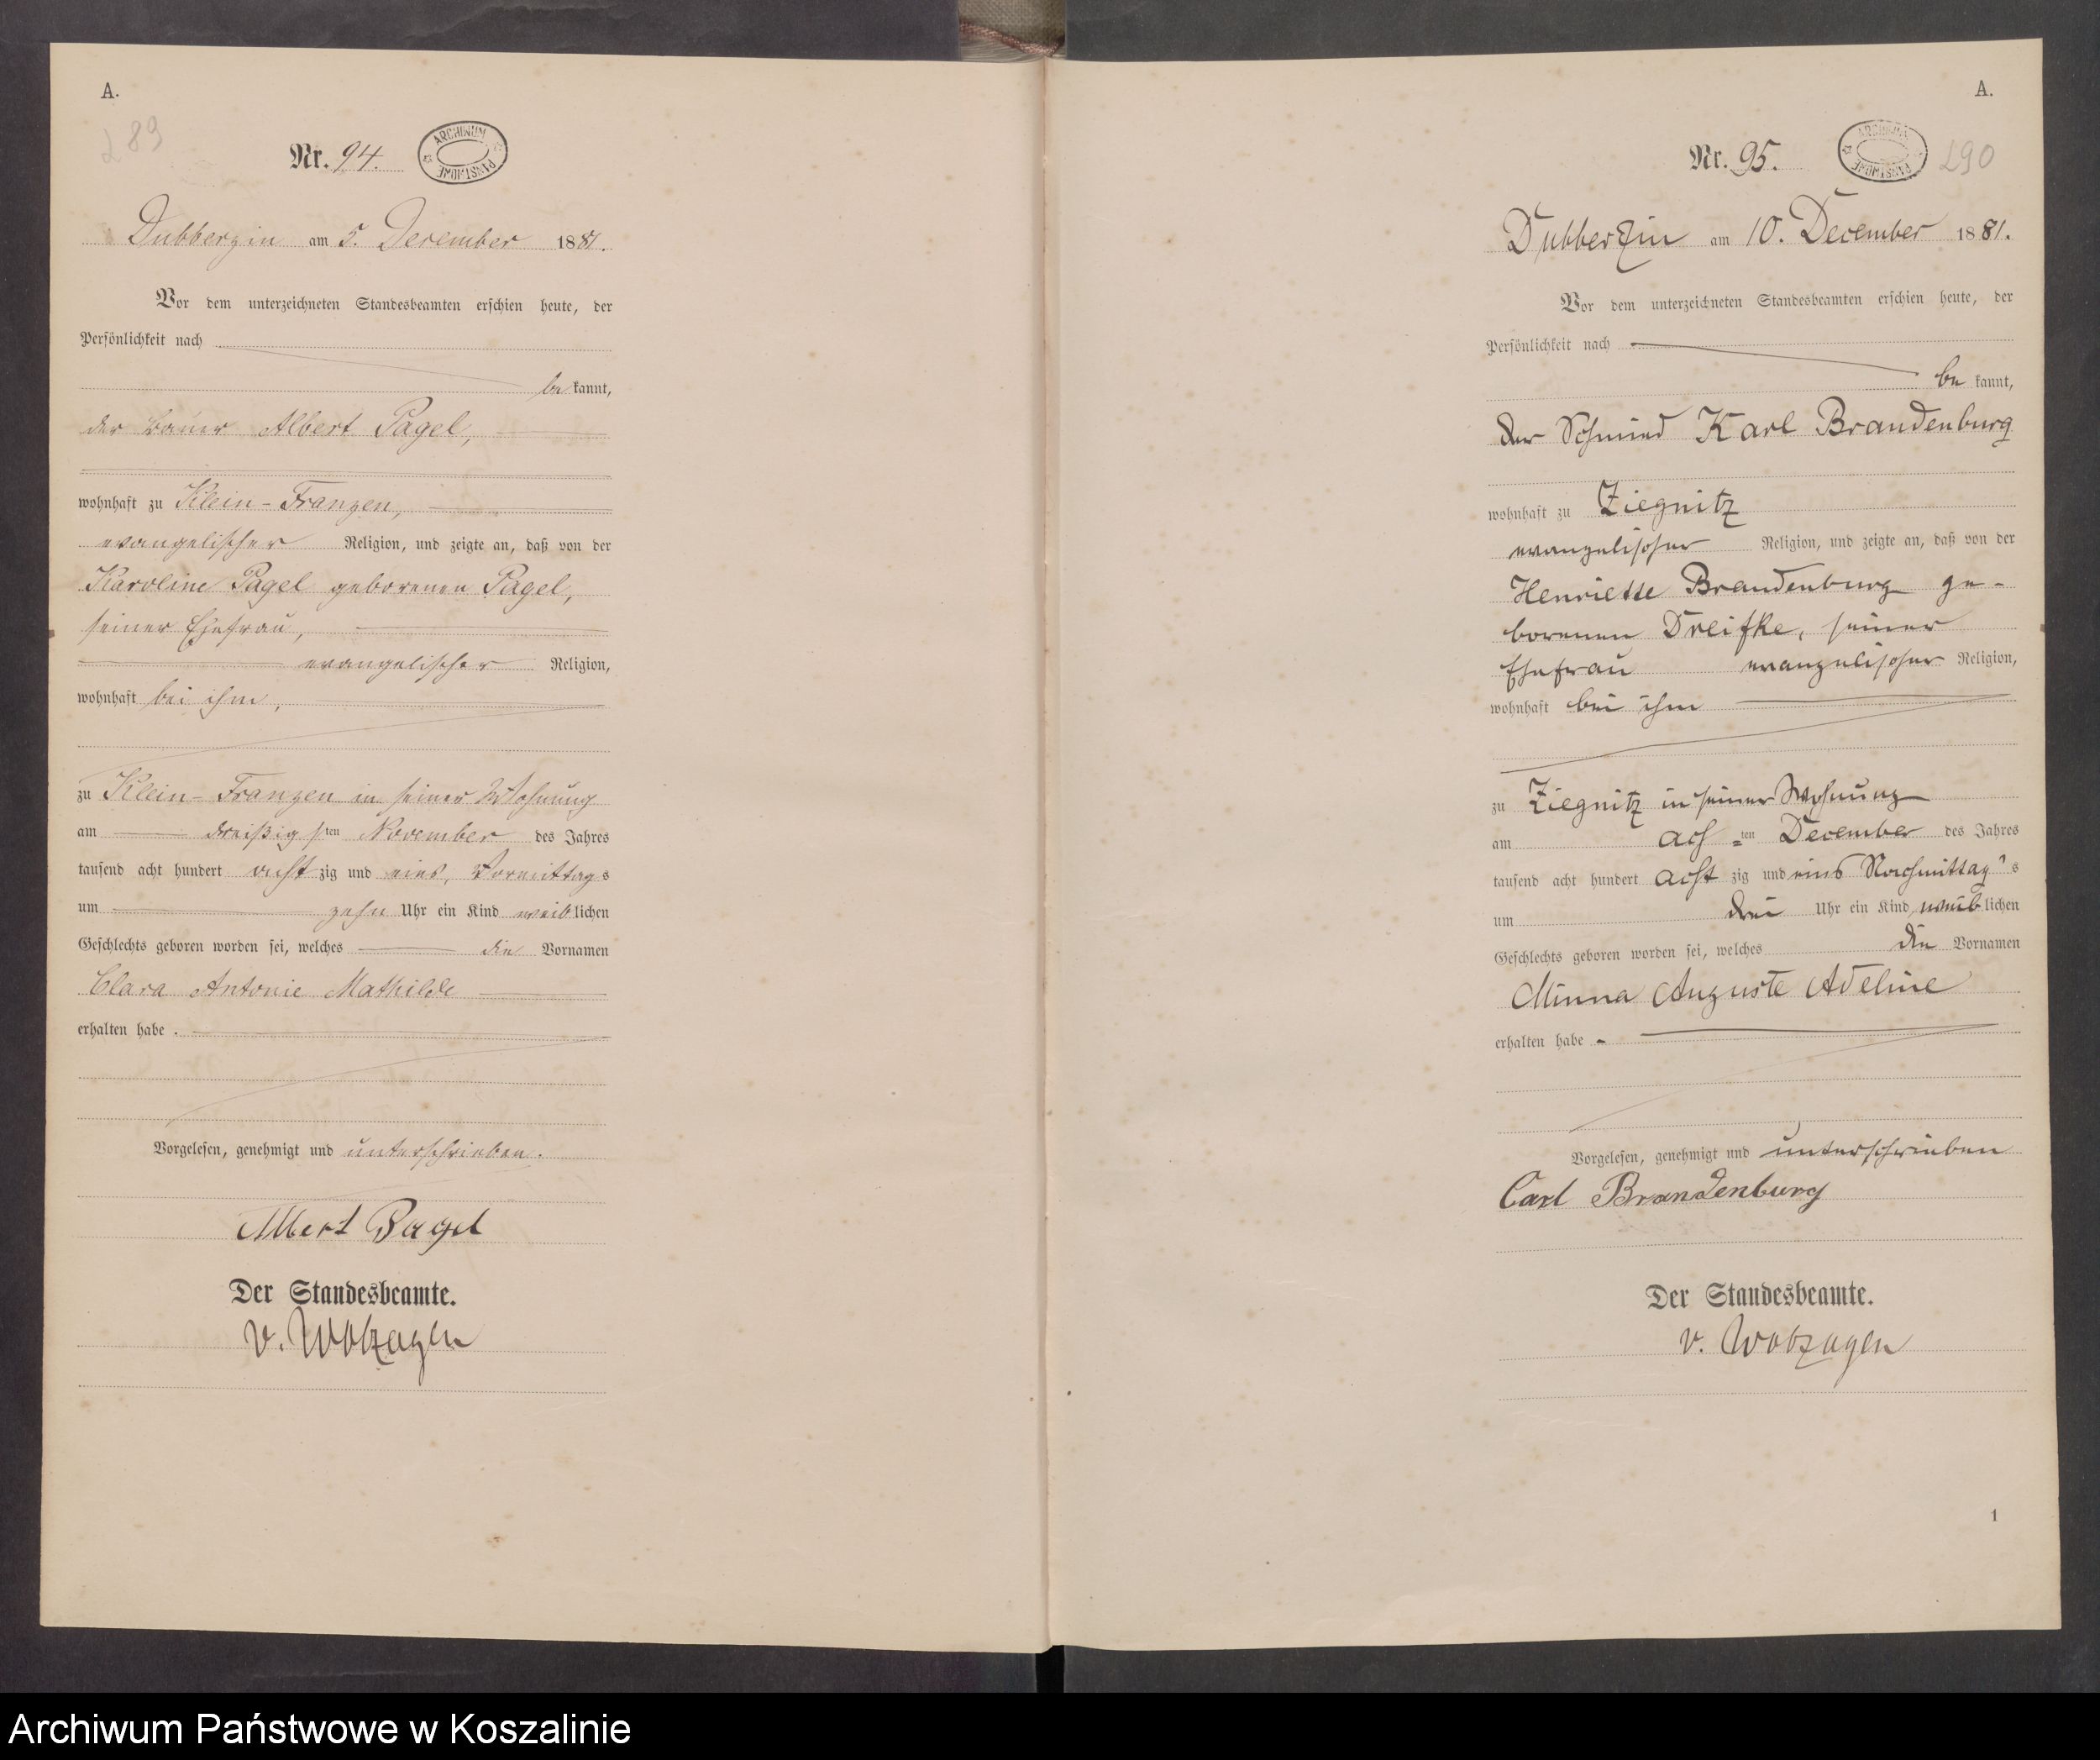 A.
289
Nr. 94.
ARCHIWUM PAŃSTWOWE
Dubberzin am 5. December 1881.
Vor dem unterzeichneten Standesbeamten erschien heute, der
Persönlichkeit nach
be kannt,
der Bauer Albert Pagel,
wohnhaft zu Klein-Franzen,
evangelischer Religion, und zeigte an, daß von der
Karoline Pagel geborenen Pagel,
seiner Ehefrau,
evangelischer Religion,
wohnhaft bei ihm,
zu Klein-Franzen in seiner Wohnung
am dreißigsten November des Jahres
tausend acht hundert achtzig und eins, Vormittags
um zehn Uhr ein Kind weiblichen
Geschlechts geboren worden sei, welches die Vornamen
Clara Antonie Mathilde
erhalten habe.
Vorgelesen, genehmigt und unterschrieben.
Albert Pagel
Der Standesbeamte.
A.
Nr. 95.
ARCHIWUM PAŃSTWOWE
290
Dubberzin am 10. December 1881.
Vor dem unterzeichneten Standesbeamten erschien heute, der
Persönlichkeit nach
be kannt,
der Schmied Karl Brandenburg
wohnhaft zu Ziegnitz
evangelischer Religion, und zeigte an, daß von der
Henriette Brandenburg ge-
borenen Dreifke, seiner
Ehefrau evangelischer Religion,
wohnhaft bei ihm
zu Ziegnitz in seiner Wohnung
am ach=ten December des Jahres
tausend acht hundert acht zig und eins Nachmittag's
um drei Uhr ein Kind weiblichen
Geschlechts geboren worden sei, welches die Vornamen
Minna Auguste Adeline
erhalten habe.
Vorgelesen, genehmigt und unterschrieben
Carl Brandenburg
Der Standesbeamte.
1
Archiwum Państwowe w Koszalinie